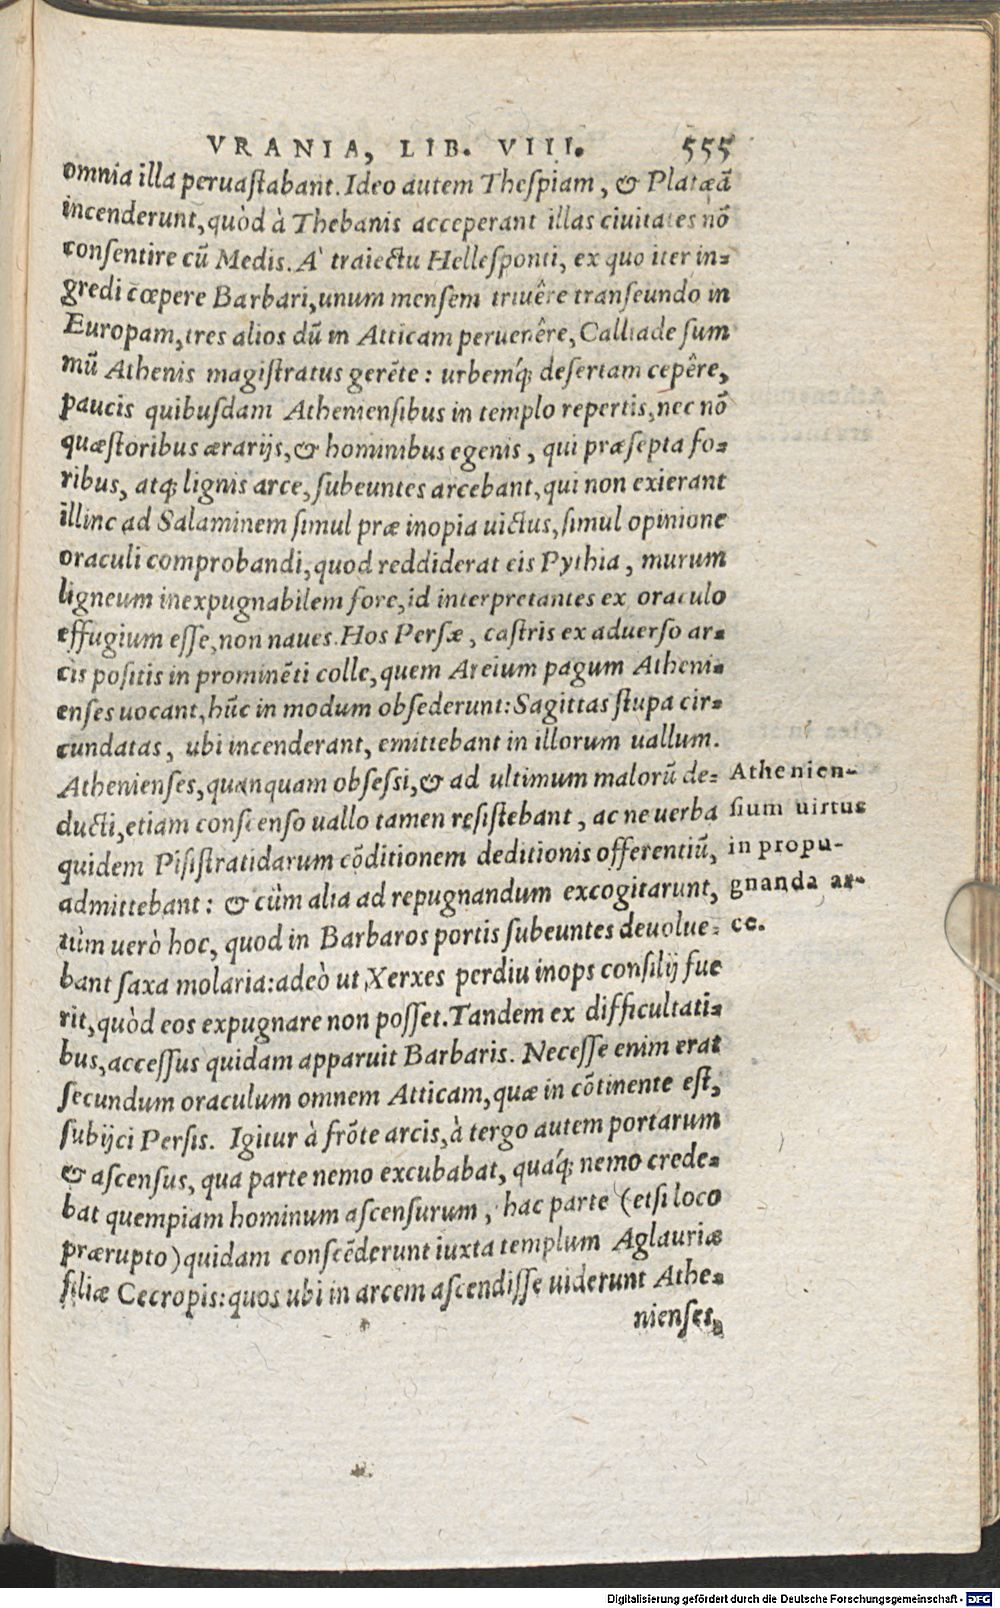 VRANIA, LIB. VIII. 555
omnia illa peruastabant. Ideo autem Thespiam, & Platæā
incenderunt, quòd à Thebanis acceperant illas ciuitates nō
consentire cū Medis. A' traiectu Hellesponti, ex quo iter in=
gredi cœpere Barbari, unum mensem triuêre transeundo in
Europam, tres alios dū in Atticam peruenêre, Calliade sum
mū Athenis magistratus gerēte: urbemq́; desertam cepêre,
paucis quibusdam Atheniensibus in templo repertis, nec nō
quæstoribus ærarijs, & hominibus egenis, qui præsepta fo=
ribus, atq; lignis arce, subeuntes arcebant, qui non exierant
illinc ad Salaminem simul præ inopia uictus, simul opinione
oraculi comprobandi, quod reddiderat eis Pythia, murum
ligneum inexpugnabilem fore, id interpretantes ex oraculo
effugium esse, non naues. Hos Persæ, castris ex aduerso ar=
cis positis in prominēti colle, quem Areium pagum Atheni=
enses uocant, hūc in modum obsederunt: Sagittas stupa cir=
cundatas, ubi incenderant, emittebant in illorum uallum.
Athenienses, quanquam obsessi, & ad ultimum malorū de=
ducti, etiam conscenso uallo tamen resistebant, ac ne uerba
quidem Pisistratidarum cōditionem deditionis offerentiū,
admittebant: & cùm alia ad repugnandum excogitarunt,
tùm uerò hoc, quod in Barbaros portis subeuntes deuolue=
bant saxa molaria: adeò ut Xerxes perdiu inops consilij fue
rit, quòd eos expugnare non posset. Tandem ex difficultati=
bus, accessus quidam apparuit Barbaris. Necesse enim erat
secundum oraculum omnem Atticam, quæ in cōtinente est,
subijci Persis. Igitur à frōte arcis, à tergo autem portarum
& ascensus, qua parte nemo excubabat, quaq́; nemo crede=
bat quempiam hominum ascensurum, hac parte (etsi loco
prærupto) quidam conscēderunt iuxta templum Aglauriæ
filiæ Cecropis: quos ubi in arcem ascendisse uiderunt Athe=
nienses,
Athenien-
sium uirtus
in propu-
gnanda ar-
ce.
Digitalisierung gefördert durch die Deutsche Forschungsgemeinschaft - DFG